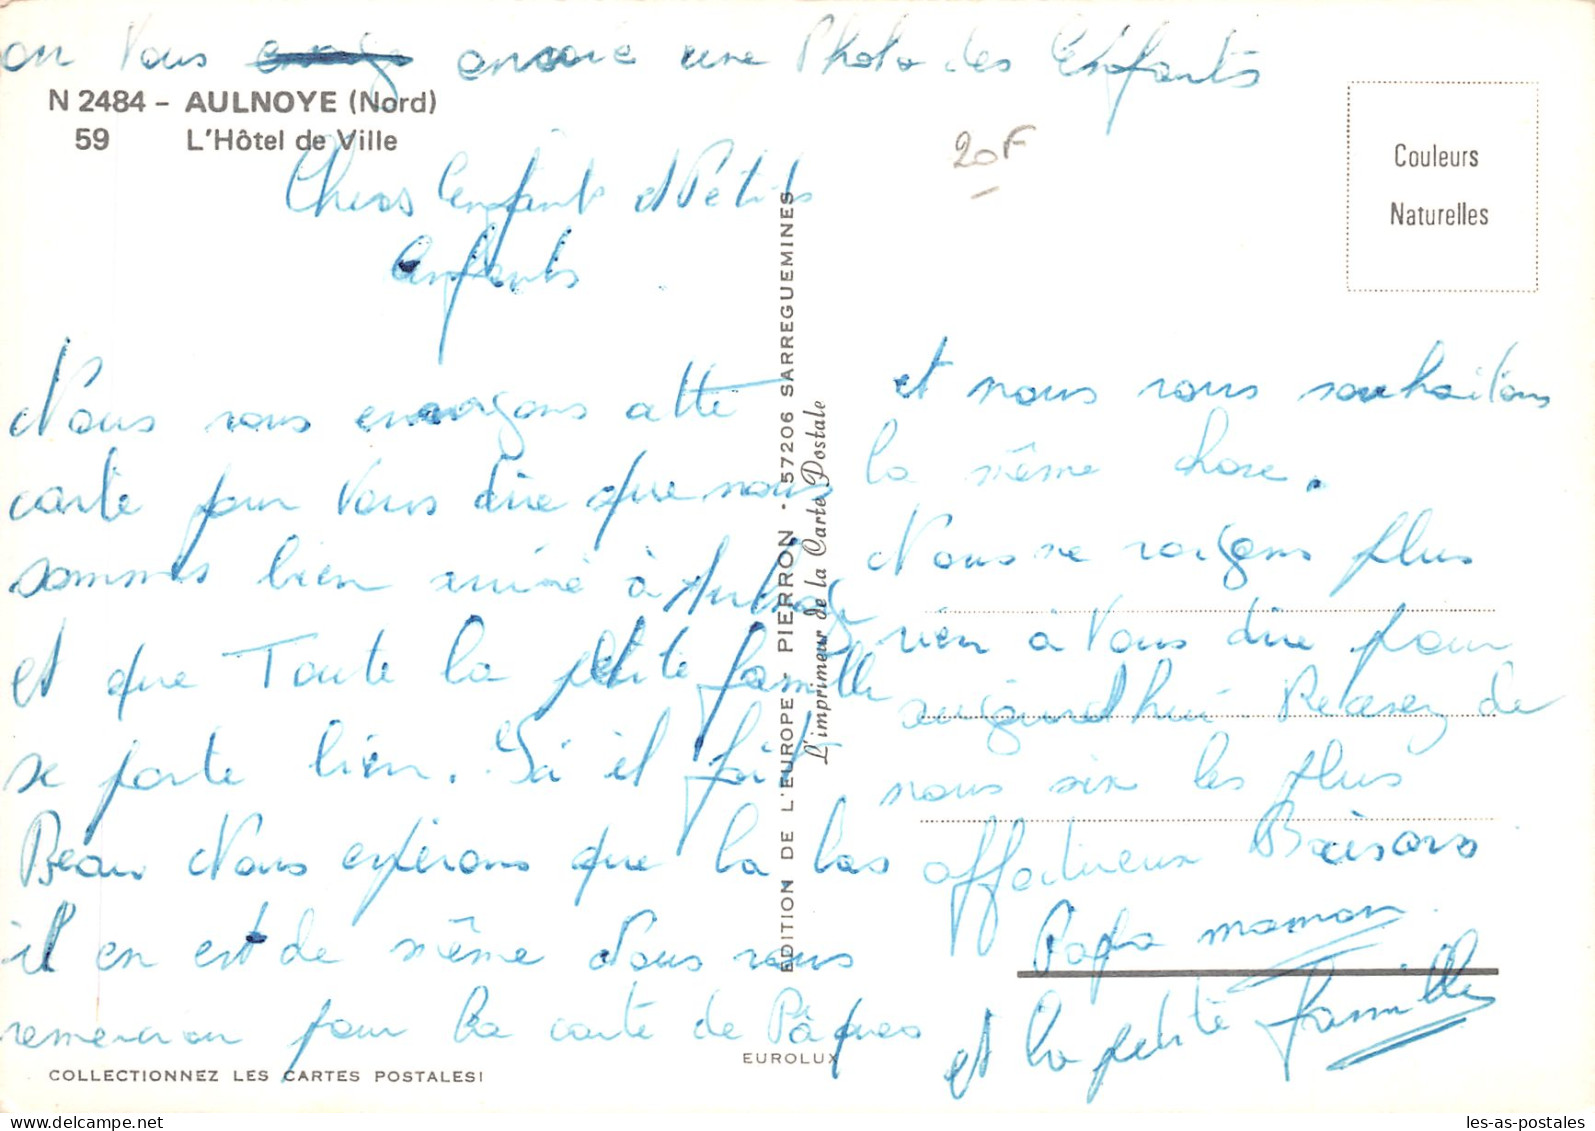 on Vous encore une Photo des Enfants
N 2484 - AULNOYE (Nord)
59 L'Hôtel de Ville
20F
Couleurs
Naturelles
Chers Enfant et Petits
Enfants
Nous vous envoyons cette
carte pour Vous dire que nous
sommes bien arrivé à Aulnoye
et que Toute la petite famille
se porte bien. Ici il fait
Beau Nous espérons que la bas
il en est de même Nous vous
remercion pour la carte de Pâques
et nous vous souhaitons
la même chose.
Nous ne voyons plus
rien à Vous dire pour
aujourd'hui Recevez de
nous six les plus
affectueux Baisers
Papa maman
et la petite famille
EDITION DE L'EUROPE - PIERRON - 57206 SARREGUEMINES
L'imprimeur de la Carte Postale
EUROLUX
COLLECTIONNEZ LES CARTES POSTALES!
les-as-postales.com